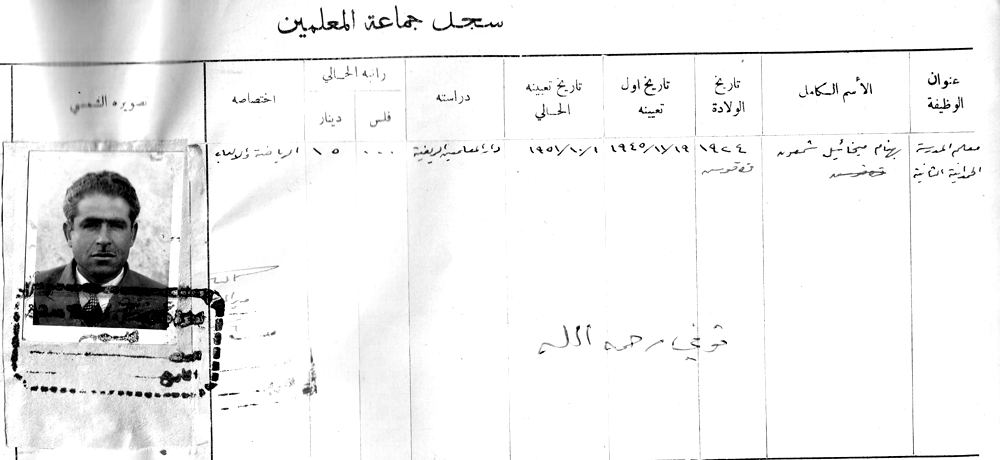 سجل جماعة المعلمين
عنوان الوظيفة
الأسم الكامل
تاريخ الولادة
تاريخ اول تعيينه
تاريخ تعيينه الحالي
دراسته
راتبه الحالي
فلس
دينار
اختصاصه
تصويره الشمسي
معلم المدرسة
الحمدانية الثانية
بهنام ميخائيل شمعون
قره قوش
١٩٢٤
قره قوش
١٩٤٥/١١/١٩
١٩٥١/١٠/١
دار المعلمين الريفية
٠٠٠
١٥
الرياضة والالعاب
توفي رحمه الله